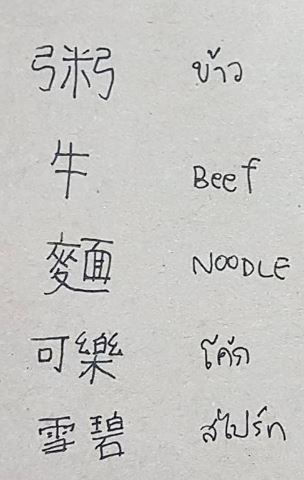 粥 ข้าว
牛 Beef
麵 NOODLE
可樂 โค้ก
雪碧 สไปร์ท